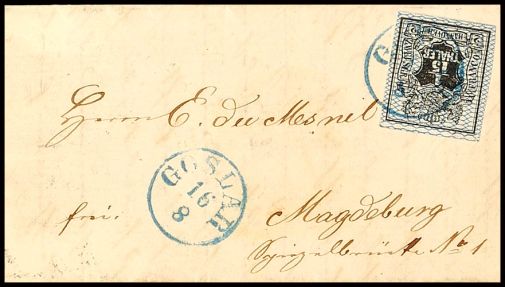 Herrn E. du Mesnil
GOSLAR
16
8
frei.
Magdeburg
Spiegelbrücke No 1
1/15
THALER